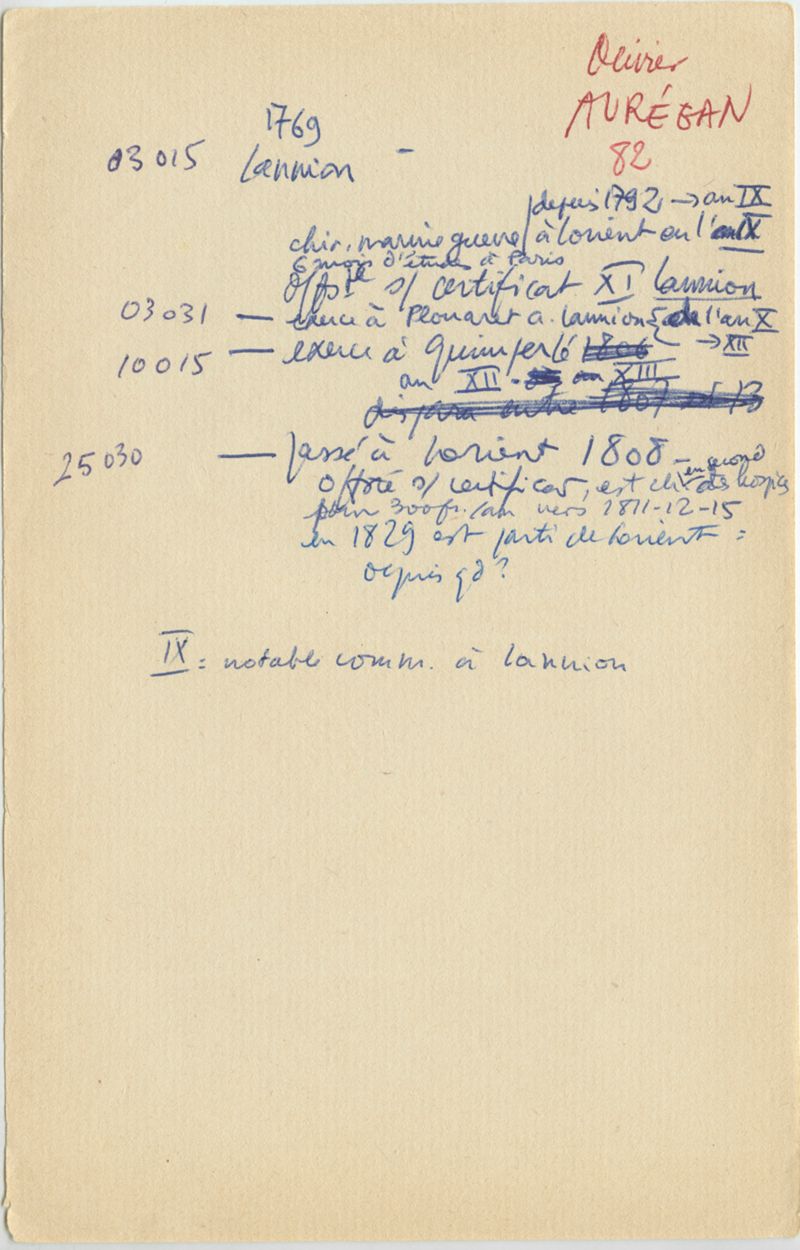 Olivier
AURÉGAN
82
1769
03015 Lannion -
depuis 1792 → an IX
chir. marine guerre à Lorient en l'an IX
6 mois d'études à Paris
s/ certificat XI Lannion
03031 — exerce à Plouaret a. Lannion de l'an X
10015 — exerce à Quimperlé 1806 → XII
an XII - an XIII
disparu entre 1807 et 13
25030 — passé à Lorient 1808 - en second
s/ certificat, est chir. des hospices
pour 300 fr./an vers 1811-12-15
en 1829 est parti de Lorient :
depuis qd ?
IX = notable comm. à Lannion